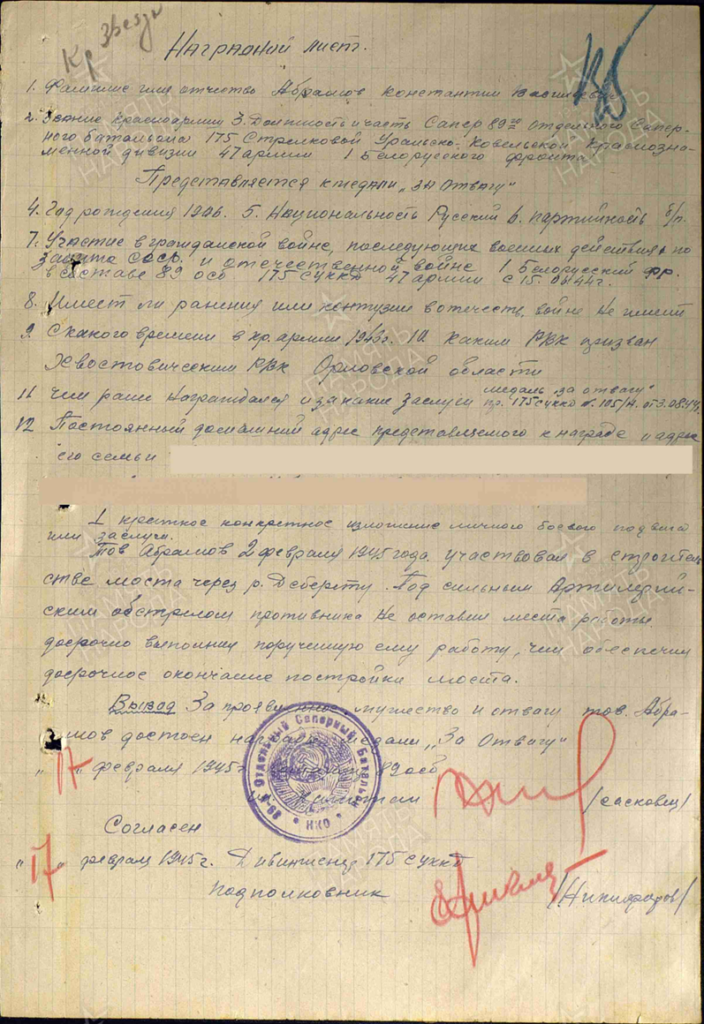 Кр Звезды
Наградной лист.
1. Фамилие имя отчество Абрамов Константин Васильевич
2. Звание красноармеец 3. Должность и часть Сапер 89го отдельного Сапер-
ного батальона 175 Стрелковой Уральско-Ковельской Краснозна-
менной дивизии 47 армии 1 Белорусского фронта
Представляется к медали „За Отвагу"
4. Год рождения 1926. 5. Национальность Русский 6. партийность б/п.
7. Участие в гражданской войне, последующих военных действиях по
защите СССР и отечественной войне 1 Белорусский фр.
в составе 89 осб 175 суккд 47 армии с 15.
8. Имеет ли ранения или контузии в отечеств. войне Не имеет
9. С какого времени в кр. армии 10. Каким РВК призван
Хвостовическим РВК Орловской области
11 Чем ранее награждался и за какие заслуги медаль „за отвагу"
пр. 175 суккд
12 Постоянный домашний адрес представляемого к награде и адрес
его семьи
I краткое конкретное изложение личного боевого подвига
или заслуги.
Тов Абрамов 2 февраля 1945 года участвовал в строитель-
стве моста через р. Под сильным Артиллерий-
ским обстрелом противника Не оставил места работы
досрочно выполнил порученную ему работу, чем обеспечил
досрочное окончание постройки моста.
Вывод За мужество и отвагу тов. Абра-
мов достоен медали „За Отвагу"
„17" февраля 1945г. 89 осб
Капитан /сасковец/
89-й Отдельный Саперный Батальон
НКО
Согласен
„17" февраля 1945г. Дивинженер 175 суккд
подполковник /Никифоров/
ПАМЯТЬ НАРОДА